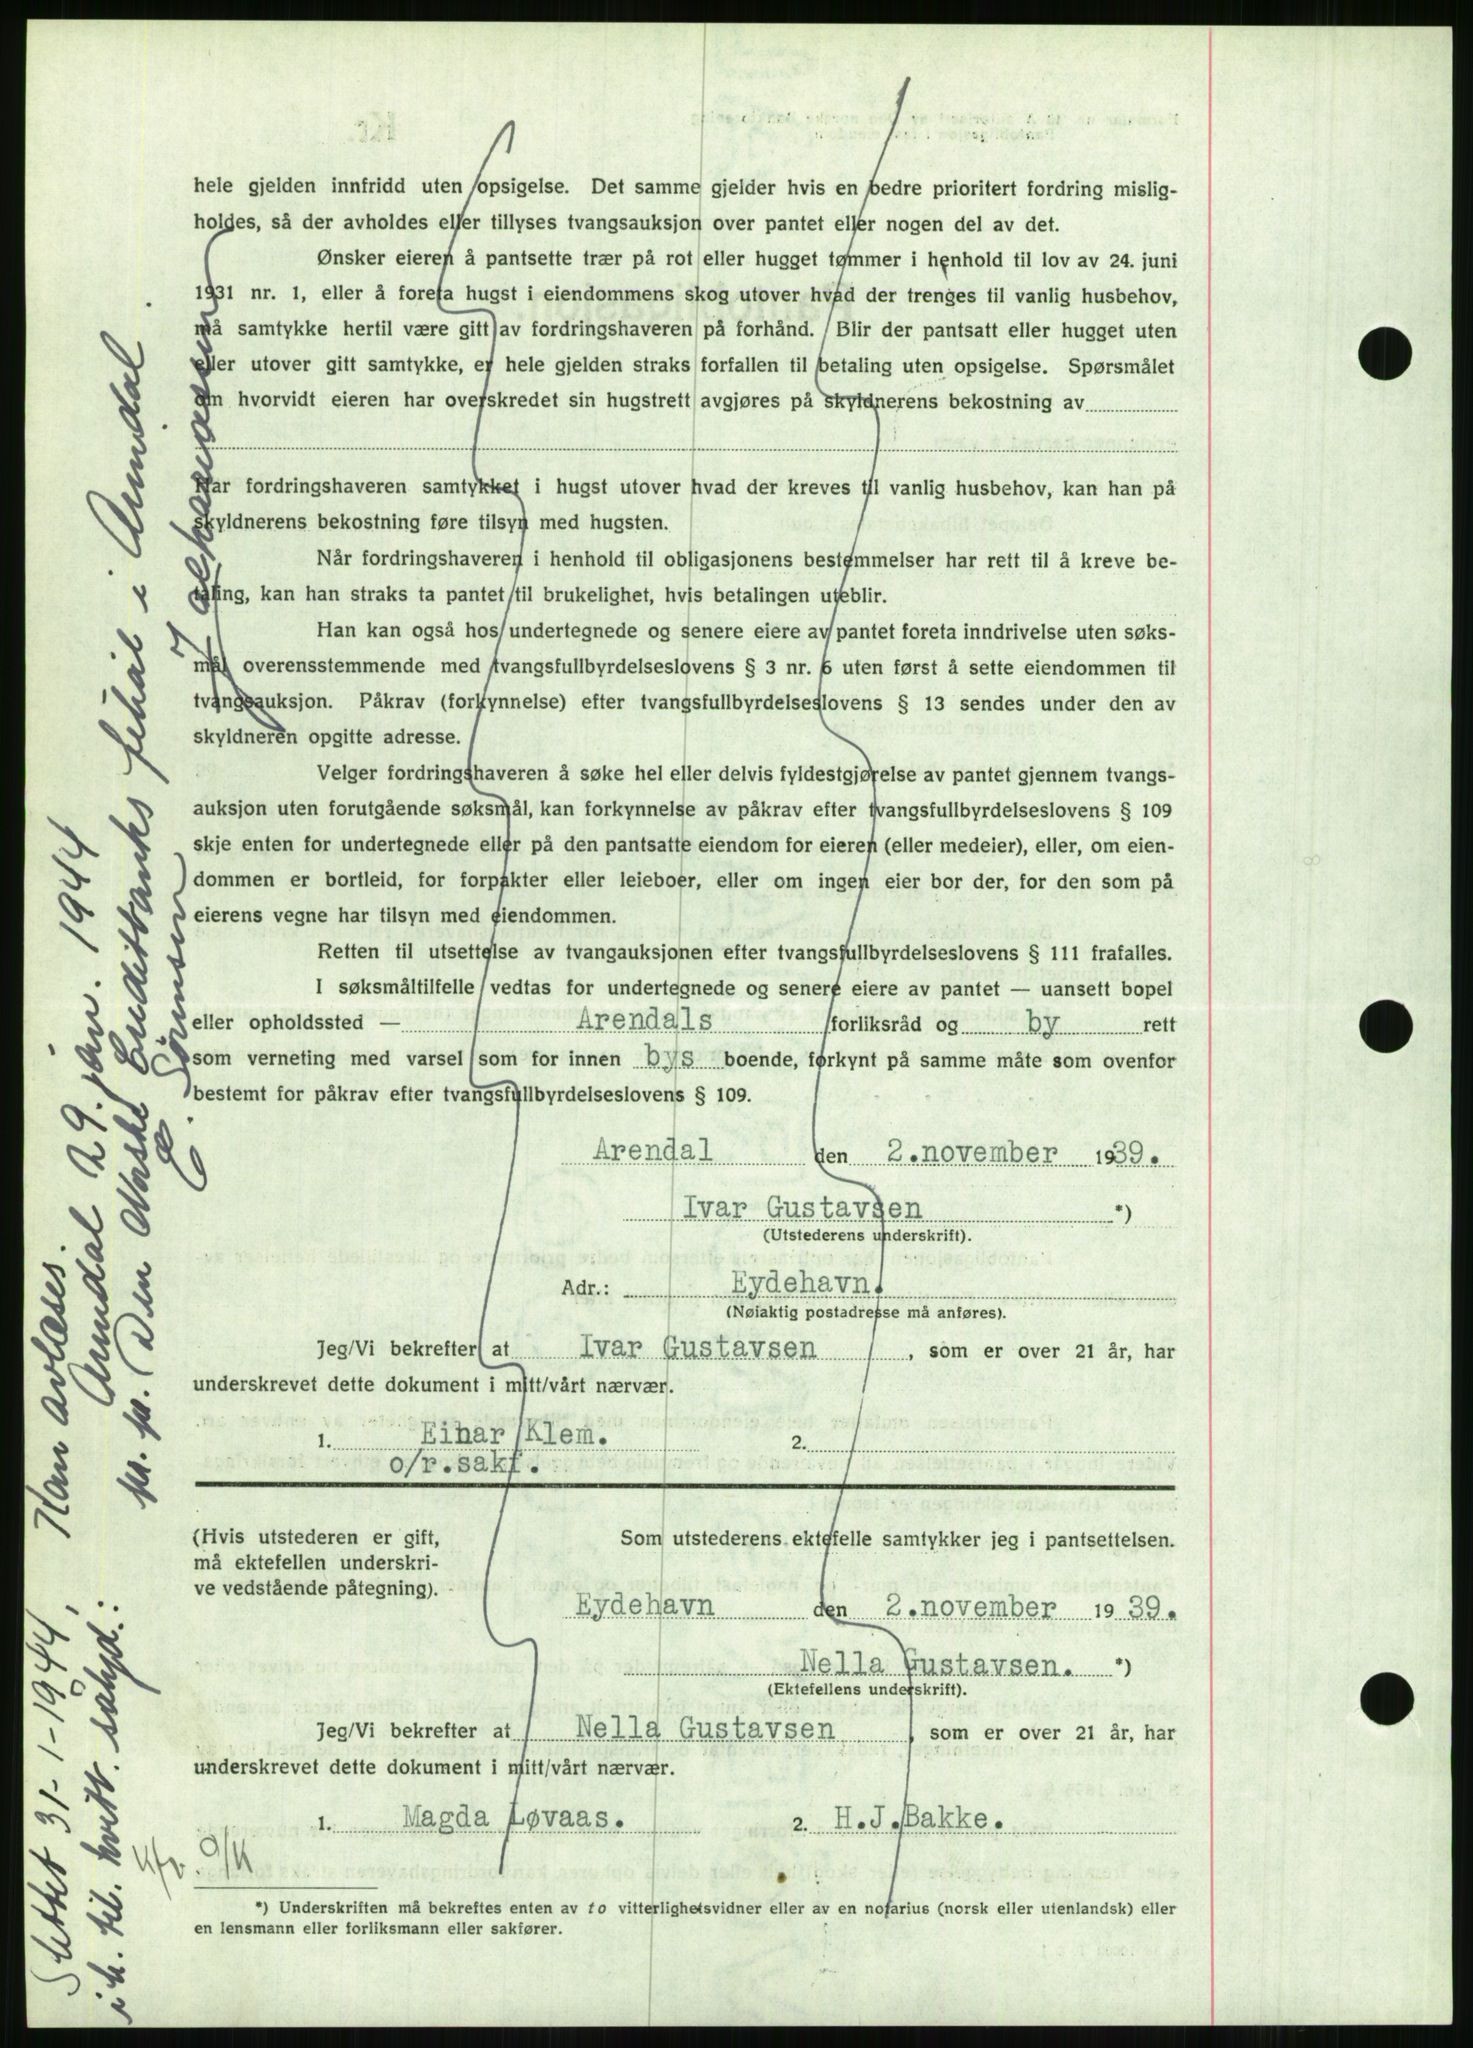 hele gjelden innfridd uten opsigelse. Det samme gjelder hvis en bedre prioritert fordring mislig-
holdes, så der avholdes eller tillyses tvangsauksjon over pantet eller nogen del av det.
Ønsker eieren å pantsette trær på rot eller hugget tømmer i henhold til lov av 24. juni
1931 nr. 1, eller å foreta hugst i eiendommens skog utover hvad der trenges til vanlig husbehov,
må samtykke hertil være gitt av fordringshaveren på forhånd. Blir der pantsatt eller hugget uten
eller utover gitt samtykke, er hele gjelden straks forfallen til betaling uten opsigelse. Spørsmålet
om hvorvidt eieren har overskredet sin hugstrett avgjøres på skyldnerens bekostning av
Har fordringshaveren samtykket i hugst utover hvad der kreves til vanlig husbehov, kan han på
skyldnerens bekostning føre tilsyn med hugsten.
Når fordringshaveren i henhold til obligasjonens bestemmelser har rett til å kreve be-
taling, kan han straks ta pantet til brukelighet, hvis betalingen uteblir.
Han kan også hos undertegnede og senere eiere av pantet foreta inndrivelse uten søks-
mål overensstemmende med tvangsfullbyrdelseslovens § 3 nr. 6 uten først å sette eiendommen til
tvangsauksjon. Påkrav (forkynnelse) efter tvangsfullbyrdelseslovens § 13 sendes under den av
skyldneren opgitte adresse.
Velger fordringshaveren å søke hel eller delvis fyldestgjørelse av pantet gjennem tvangs-
auksjon uten forutgående søksmål, kan forkynnelse av påkrav efter tvangsfullbyrdelseslovens § 109
skje enten for undertegnede eller på den pantsatte eiendom for eieren (eller medeier), eller, om eien-
dommen er bortleid, for forpakter eller leieboer, eller om ingen eier bor der, for den som på
eierens vegne har tilsyn med eiendommen.
Retten til utsettelse av tvangauksjonen efter tvangsfullbyrdelseslovens § 111 frafalles.
I søksmåltilfelle vedtas for undertegnede og senere eiere av pantet — uansett bopel
eller opholdssted — Arendals forliksråd og by rett
som verneting med varsel som for innen bys boende, forkynt på samme måte som ovenfor
bestemt for påkrav efter tvangsfullbyrdelseslovens § 109.
Arendal den 2.november 1939.
Ivar Gustavsen *)
(Utstederens underskrift).
Adr.: Eydehavn.
(Nøiaktig postadresse må anføres).
Jeg/Vi bekrefter at Ivar Gustavsen , som er over 21 år, har
underskrevet dette dokument i mitt/vårt nærvær.
1. Einar Klem. 2.
o/r.sakf.
(Hvis utstederen er gift,
må ektefellen underskri-
ve vedstående påtegning).
Som utstederens ektefelle samtykker jeg i pantsettelsen.
Eydehavn den 2.november 1939.
Nella Gustavsen. *)
(Ektefellens underskrift).
Jeg/Vi bekrefter at Nella Gustavsen , som er over 21 år, har
underskrevet dette dokument i mitt/vårt nærvær.
1. Magda Løvaas. 2. H.J.Bakke.
*) Underskriften må bekreftes enten av to vitterlighetsvidner eller av en notarius (norsk eller utenlandsk) eller
en lensmann eller forliksmann eller sakfører.
Slettet 31-1-1944,
i h. til. kvitt. sålyd:
Kan avlæses.
Arendal 29. jan. 1944
pr. pr. Den Norske Creditbanks filial i Arendal.